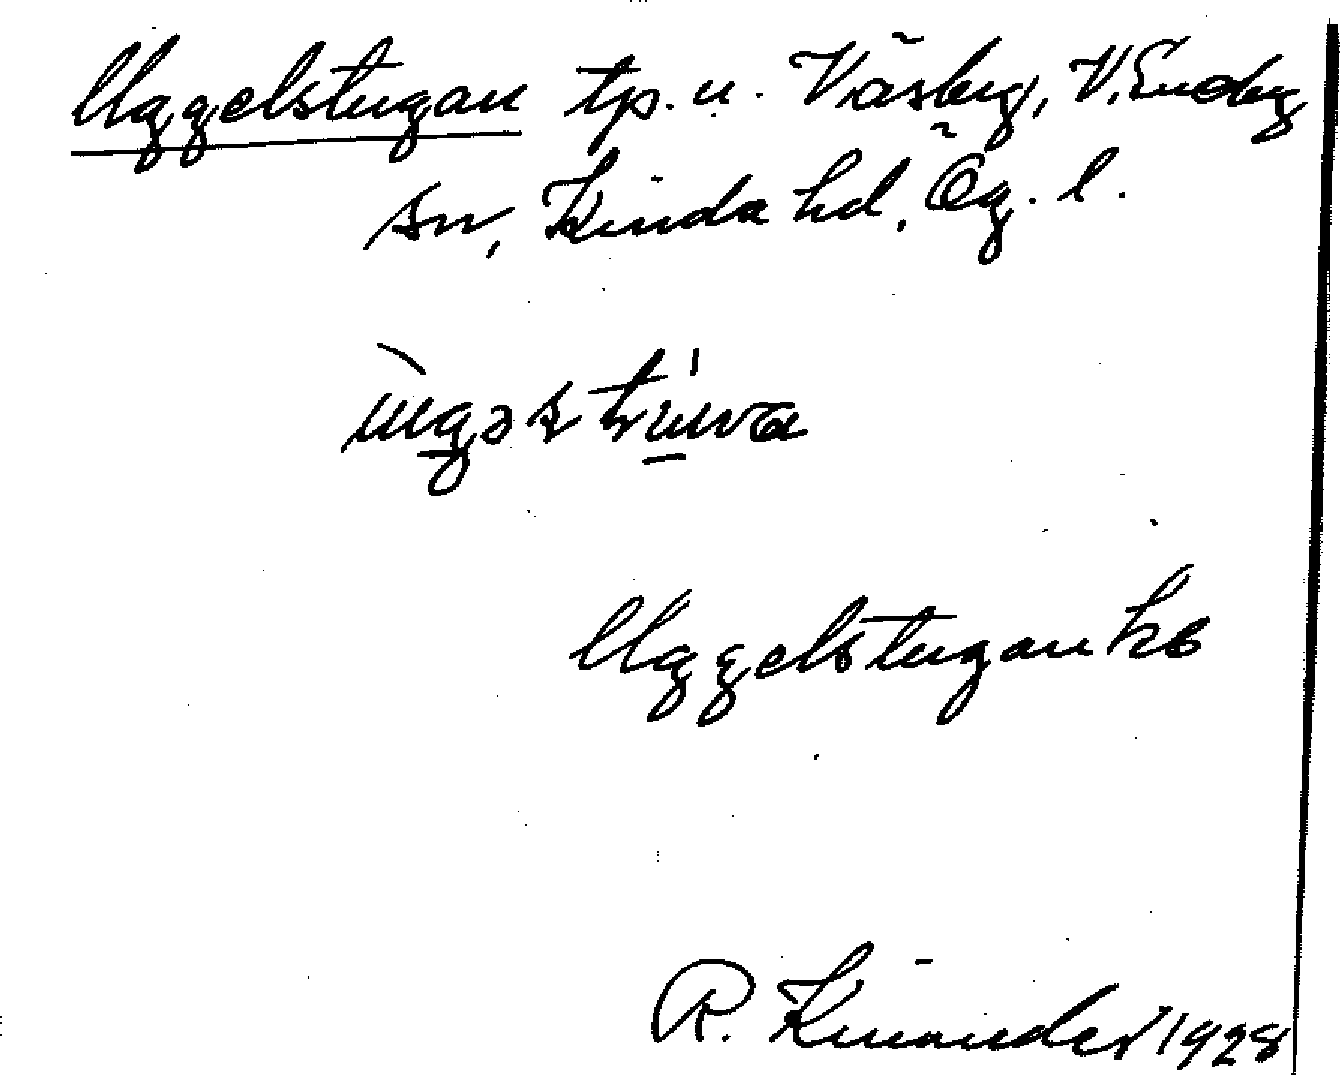 Uggelstugan tp. u. Väsby, V. Eneby
sn, Kinda hd, Ög. l.
ùgəstúwa
Uggelstugan kb
R. Kinander 1928